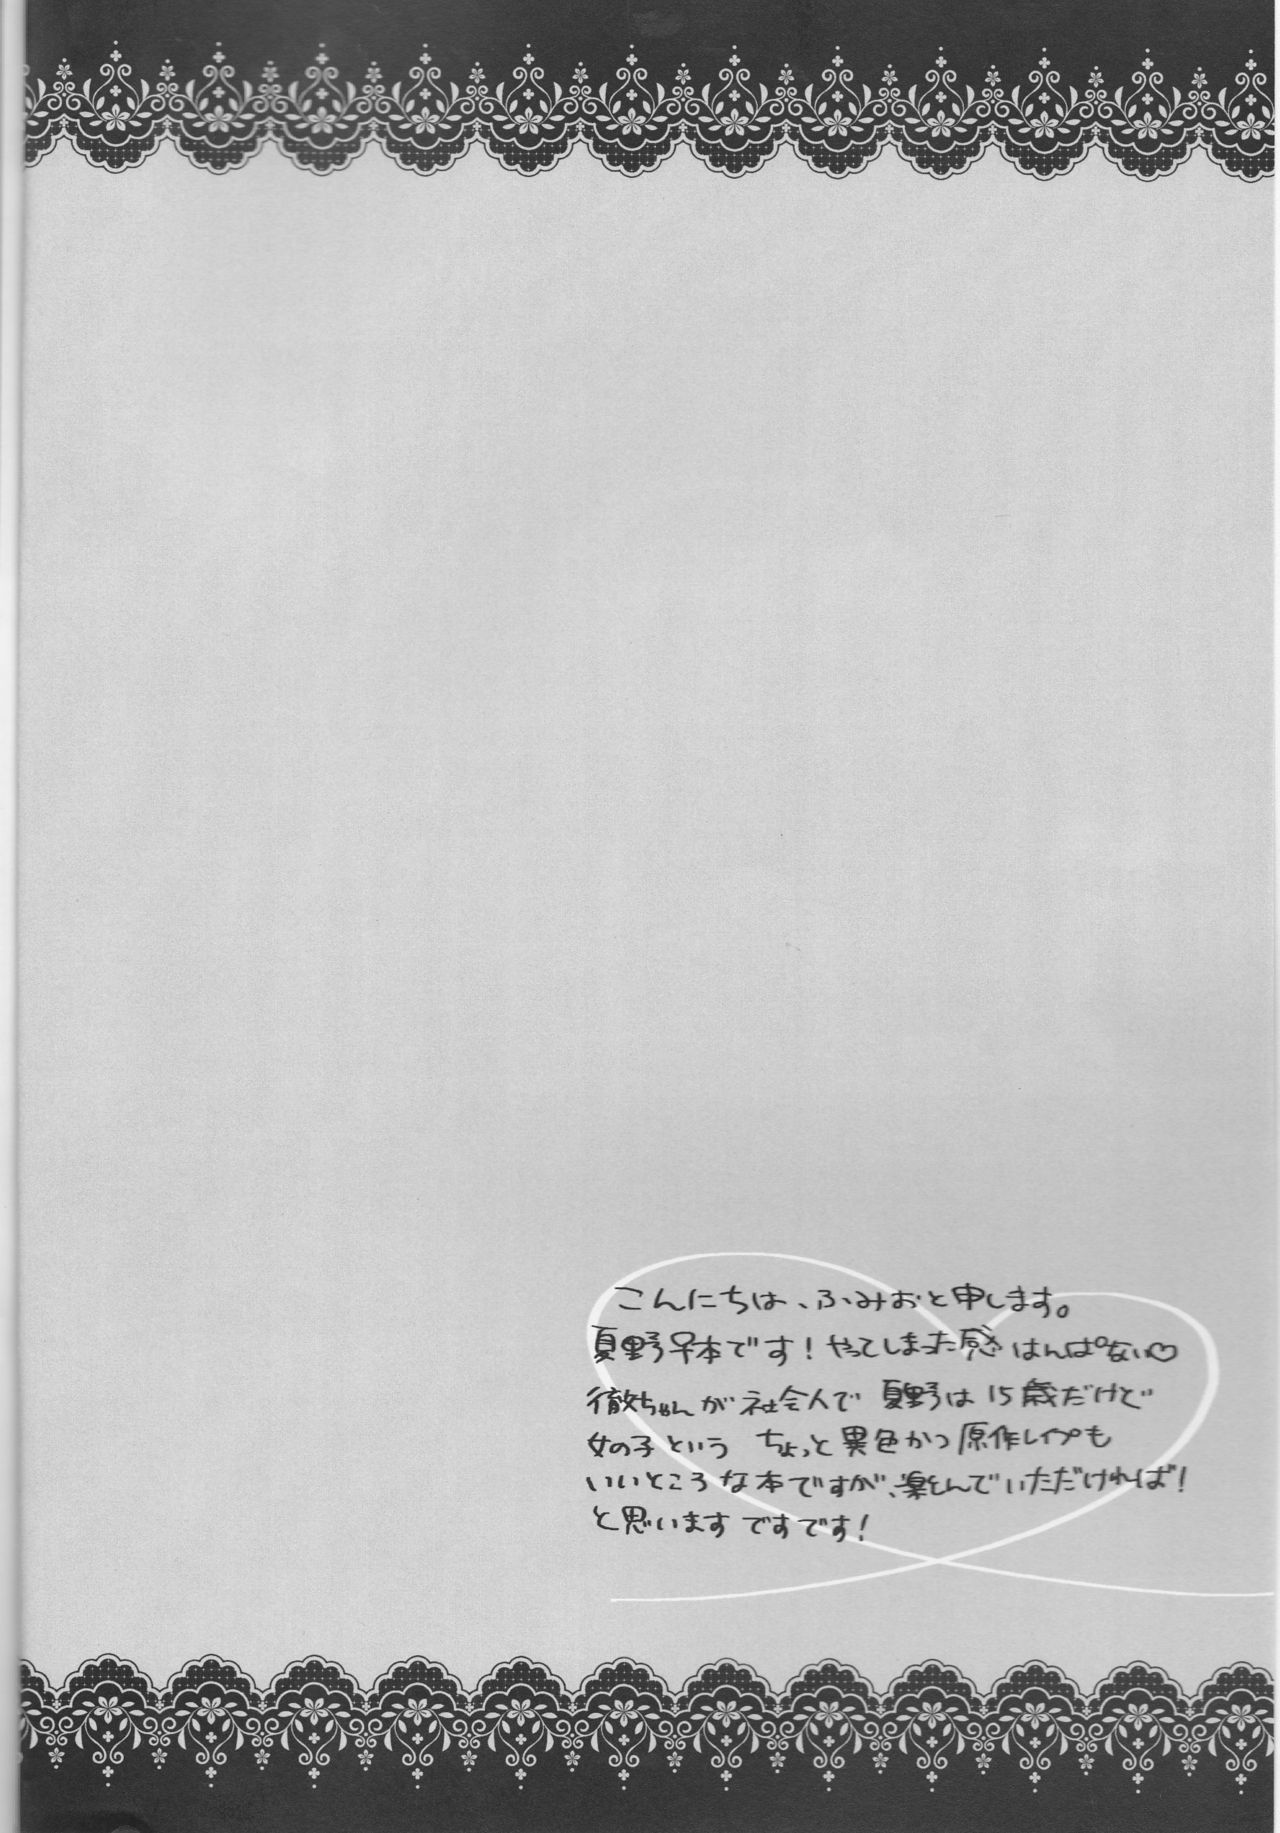 こんにちは、ふみおと申します。
夏野♀本です！やってしまった感はんぱない♡
徹ちゃんが社会人で 夏野は15歳だけど
女の子という ちょっと異色かつ原作レイプも
いいところな本ですが、楽しんでいただければ！
と思います ですです！